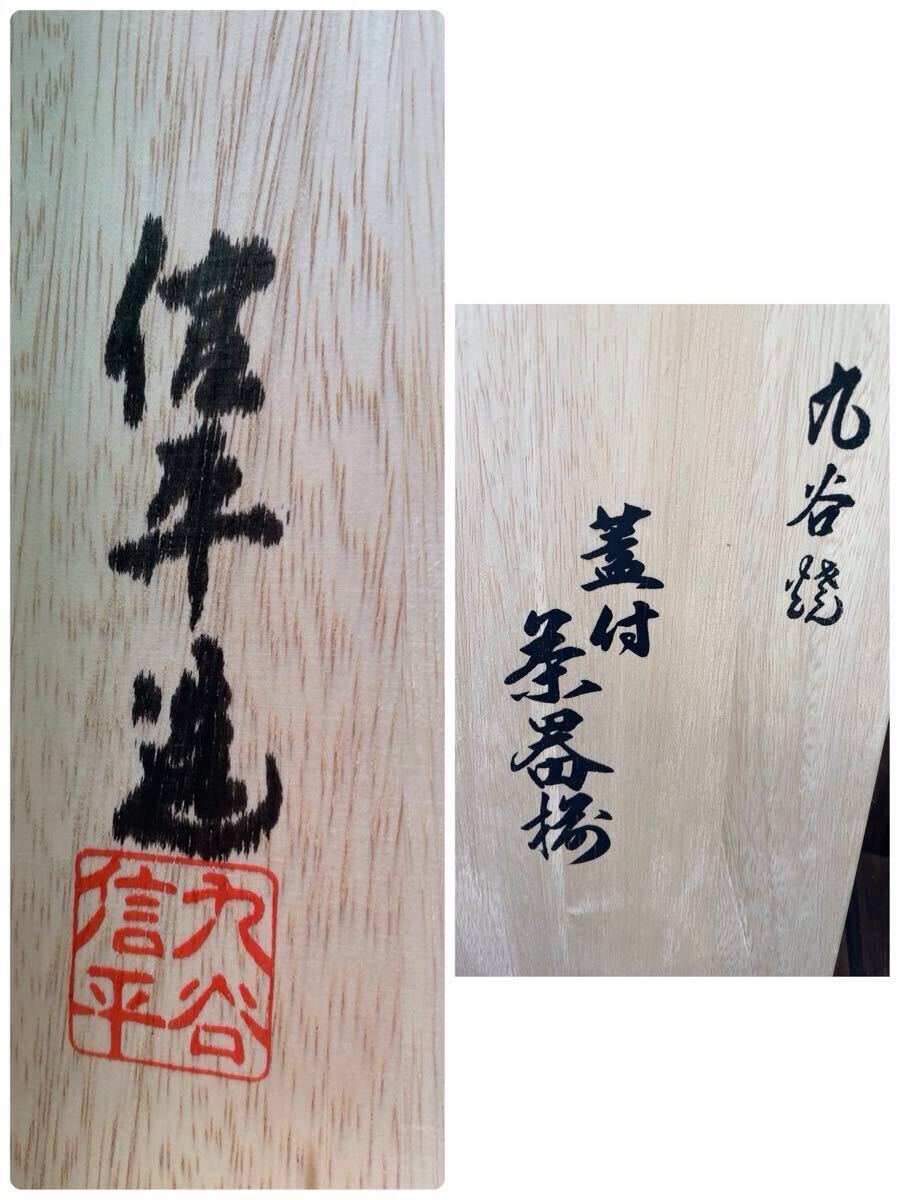 信平造
九谷
信平
九谷焼
蓋付
茶器揃